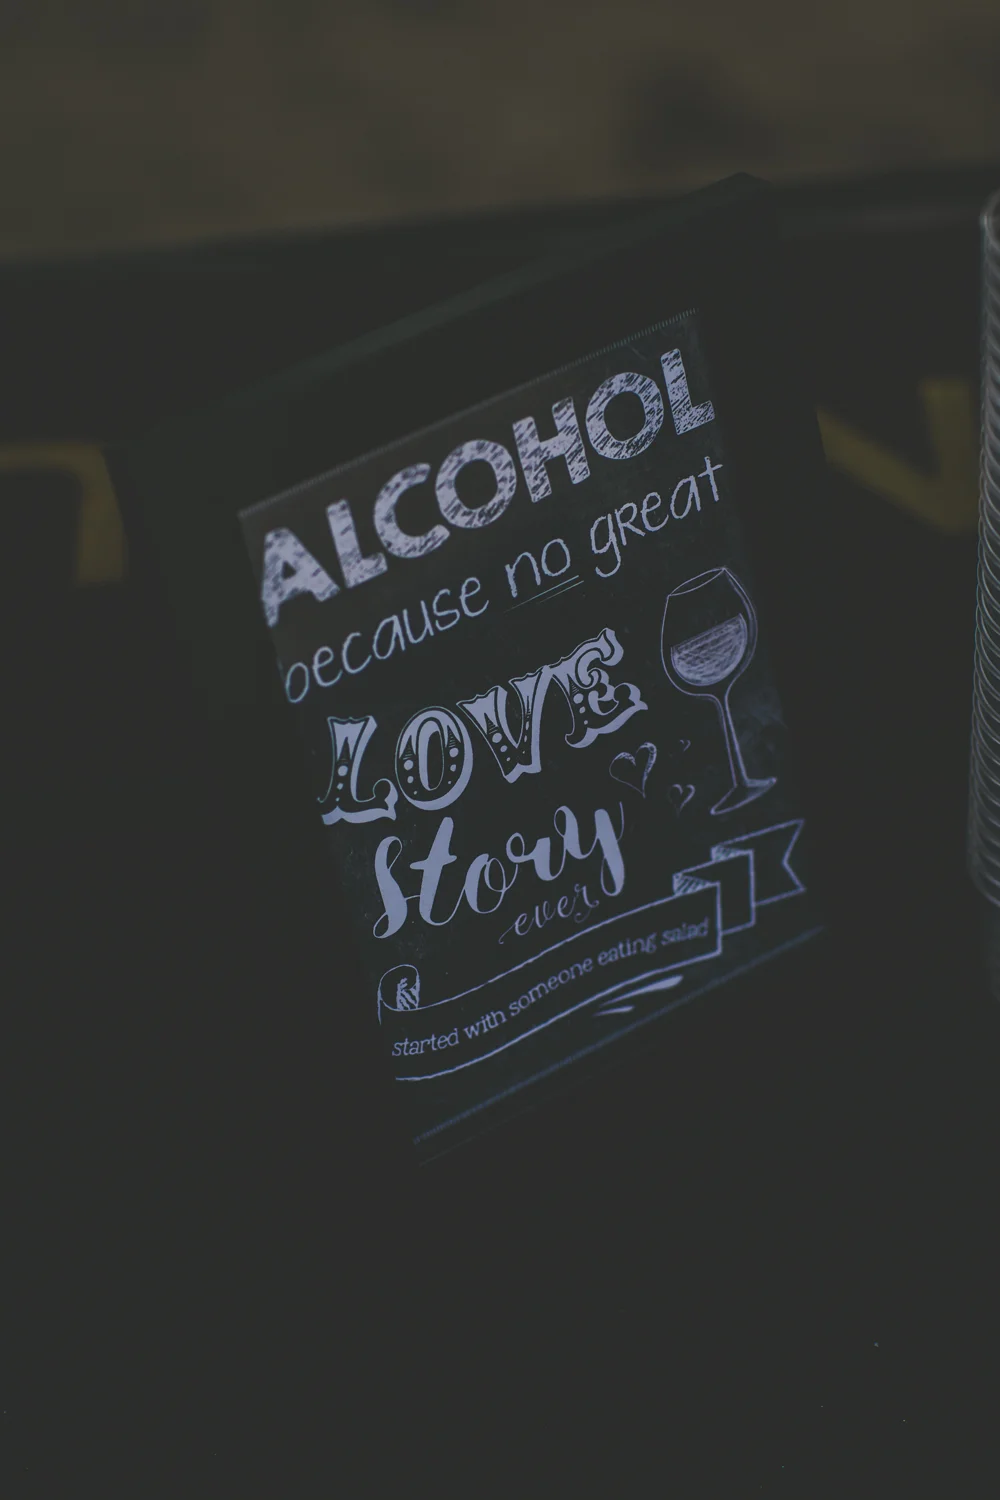 ALCOHOL
because no great
LOVE
Story
ever
started with someone eating salad